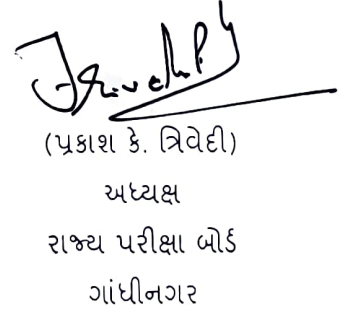 (પ્રકાશ કે. ત્રિવેદી)
અધ્યક્ષ
રાજ્ય પરીક્ષા બોર્ડ
ગાંધીનગર